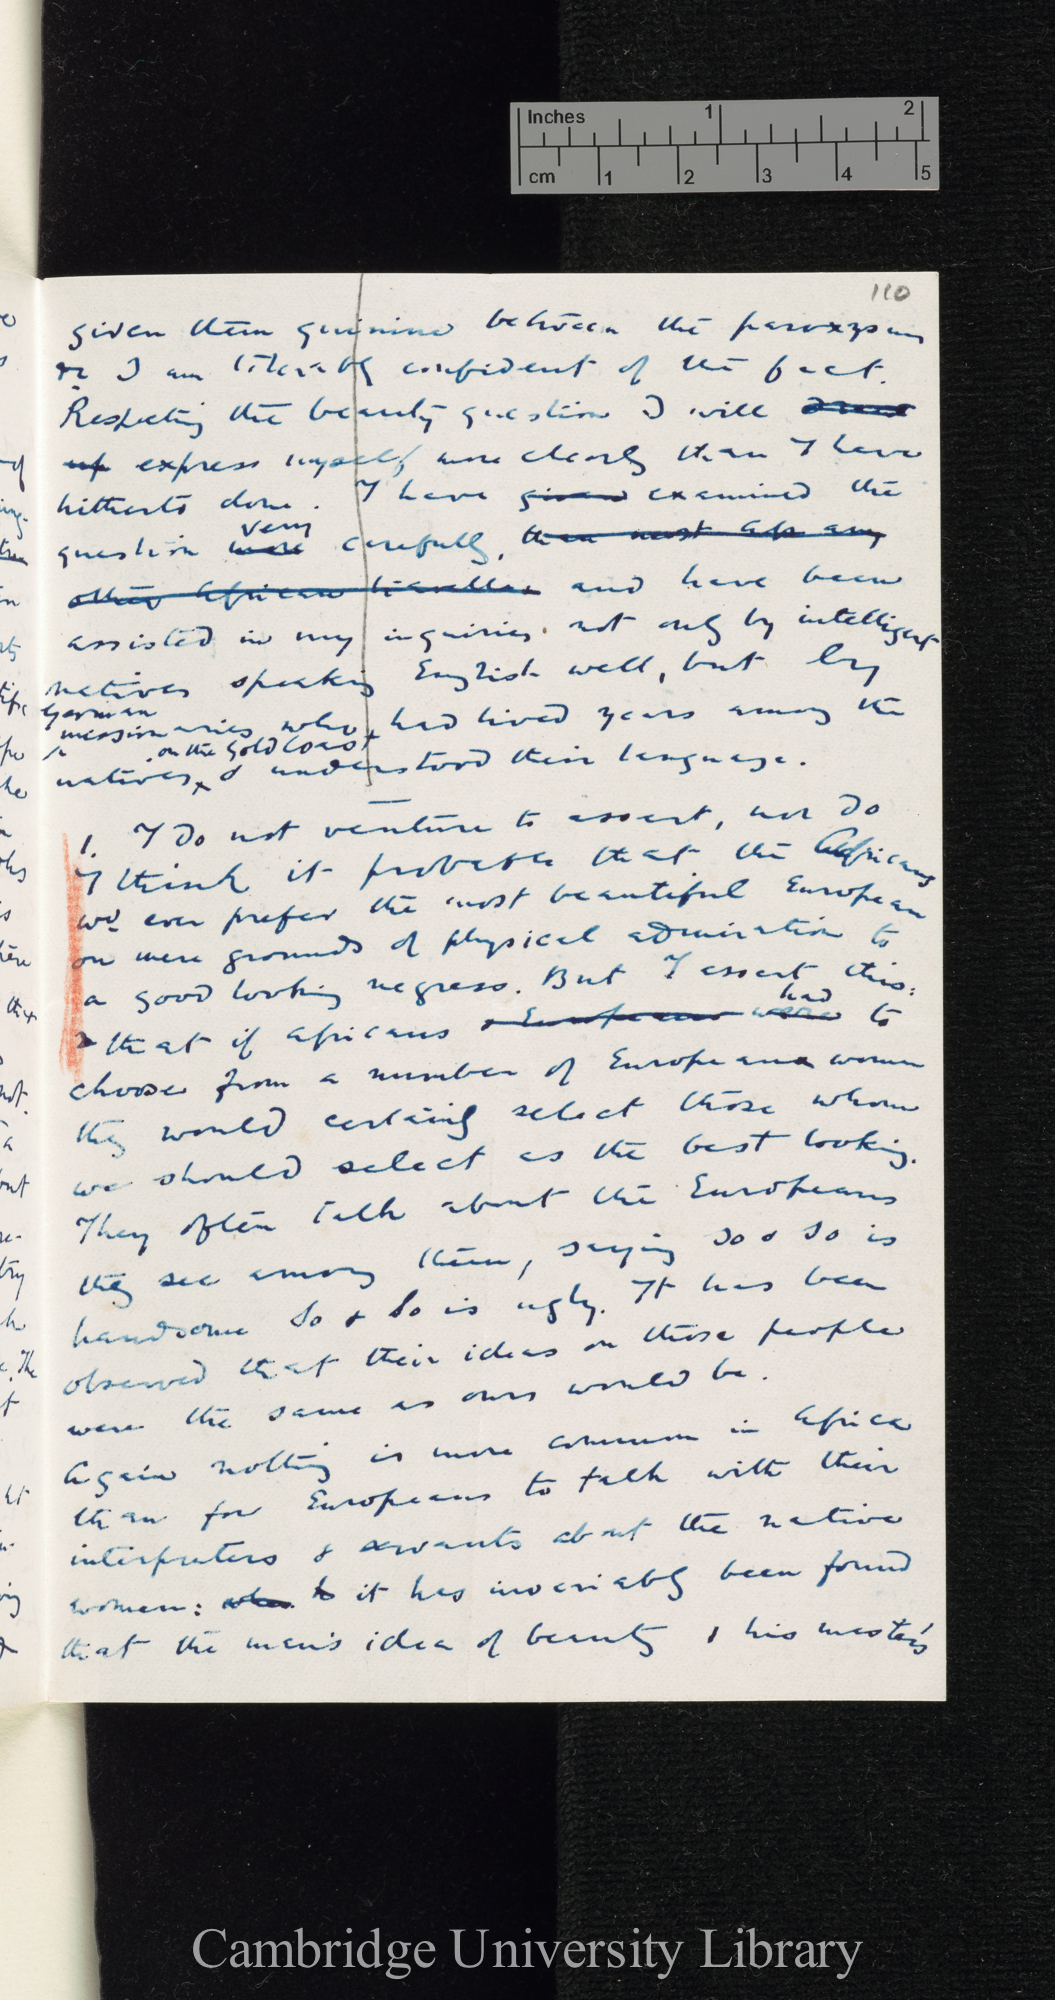 Inches 1 2
cm 1 2 3 4 5
110
given them quinine between the paroxysms
&c I am tolerably confident of the fact.
Respecting the beauty question I will
up express myself more clearly than I have
hitherto done. I have given examined the
very
question more carefully, than most
other African traveller and have been
assisted in my inquiries not only by intelligent
natives speaking English well, but by
German
missionaries who had lived years among the
on the Gold Coast
natives & understood their language.
1. I do not venture to assert, nor do
I think it probable that the Africans
wd ever prefer the most beautiful European
on mere grounds of physical admiration to
a good looking negress. But I assert this:
had
that if Africans & Europeans were to
choose from a number of European women
they would certainly select those whom
we should select as the best looking.
They often talk about the Europeans
they see among them, saying So & So is
handsome So & So is ugly. It has been
observed that their ideas on those people
were the same as ours would be.
Again nothing is more common in Africa
than for Europeans to talk with their
interpreters & servants about the native
women: it has invariably been found
that the man's idea of beauty & his master's
Cambridge University Library